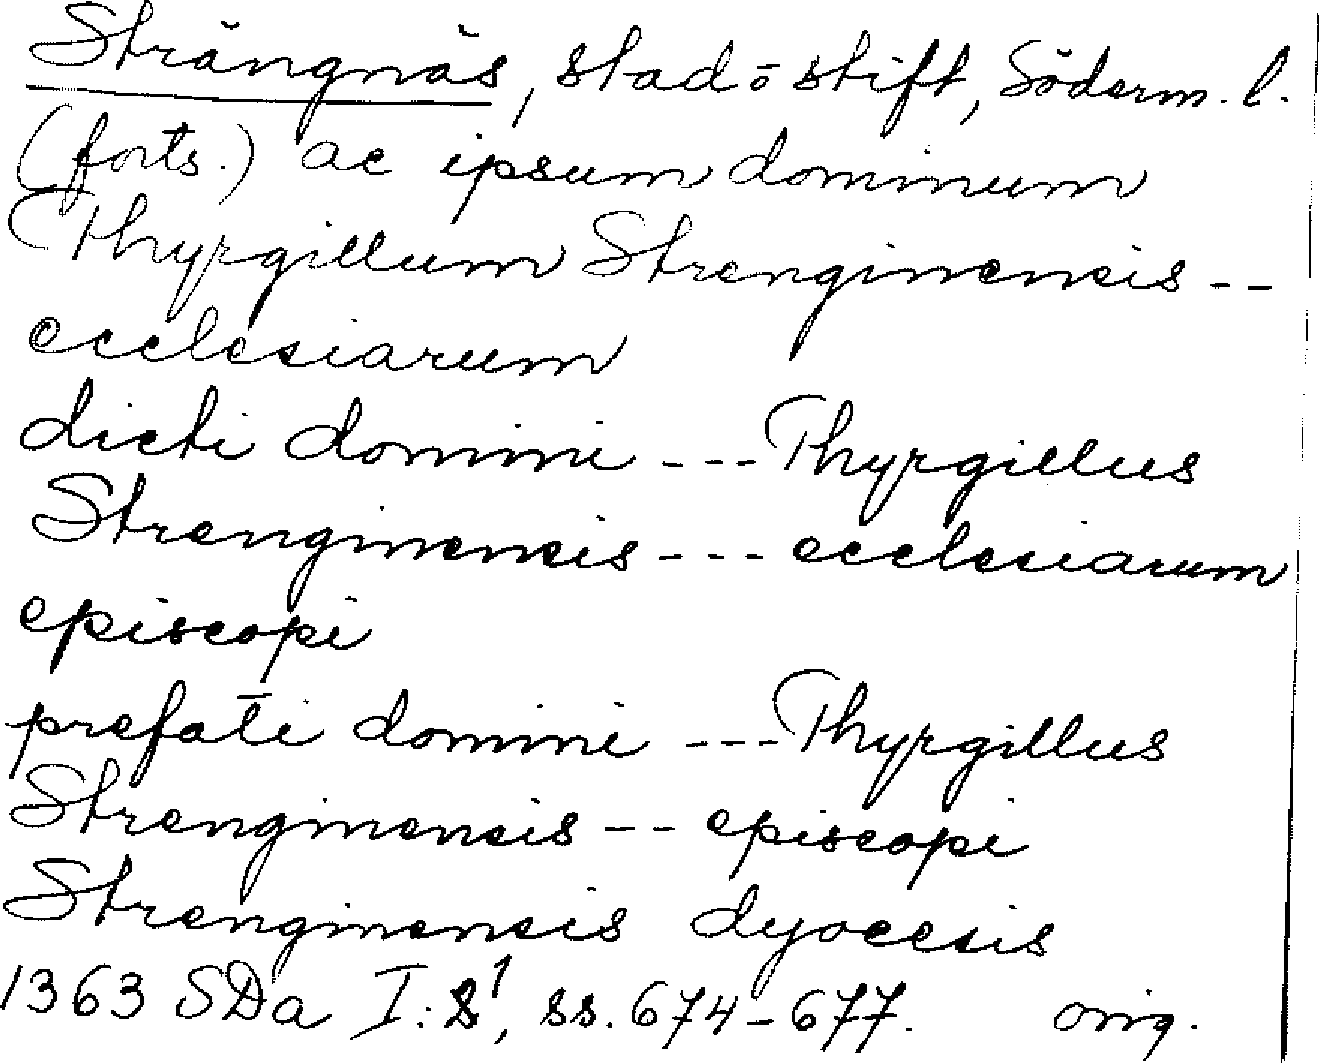 Strängnäs, stad ō stift, Söderm. l.
(forts.) ac ipsum dominum
Thyrgillum Strenginensis --
ecclesiarum
dicti domini --- Thyrgillus
Strenginensis --- ecclesiarum
episcopi
prefati domini --- Thyrgillus
Strenginensis -- episcopi
Strenginensis dyocesis
1363 SDa I: 1, ss. 674-677. orig.